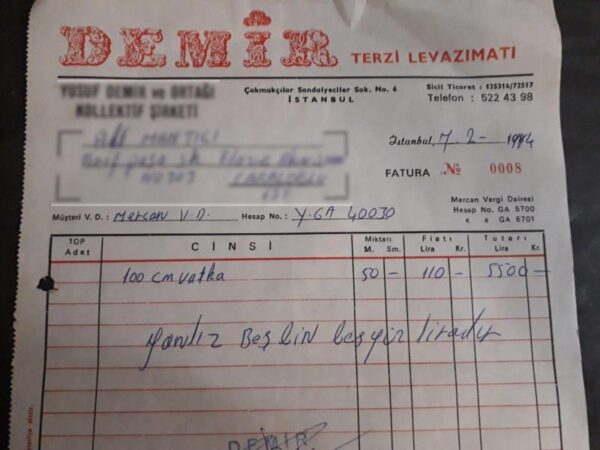 DEMİR TERZİ LEVAZIMATI
YUSUF DEMİR ve ORTAĞI
KOLLEKTİF ŞİRKETİ
Çakmakçılar Sandalyeciler Sok. No. 6
İSTANBUL
Sicil Ticaret : 125314/72517
Telefon : 522 43 98
İstanbul, 7.2- 1984
FATURA No 0008
Mercan Vergi Dairesi
Hesap No. GA 5700
« « GA 5701
Müşteri V. D. : Mercan V.D. Hesap No. : Y.GA 40030
TOP Adet CİNSİ Miktarı M. Sm. Fiatı Lira Kr. Tutarı Lira Kr.
100 cm vatka 50 - 110 - 5500 -
Yanlız Beş bin beşyüz liradır
DEMİR